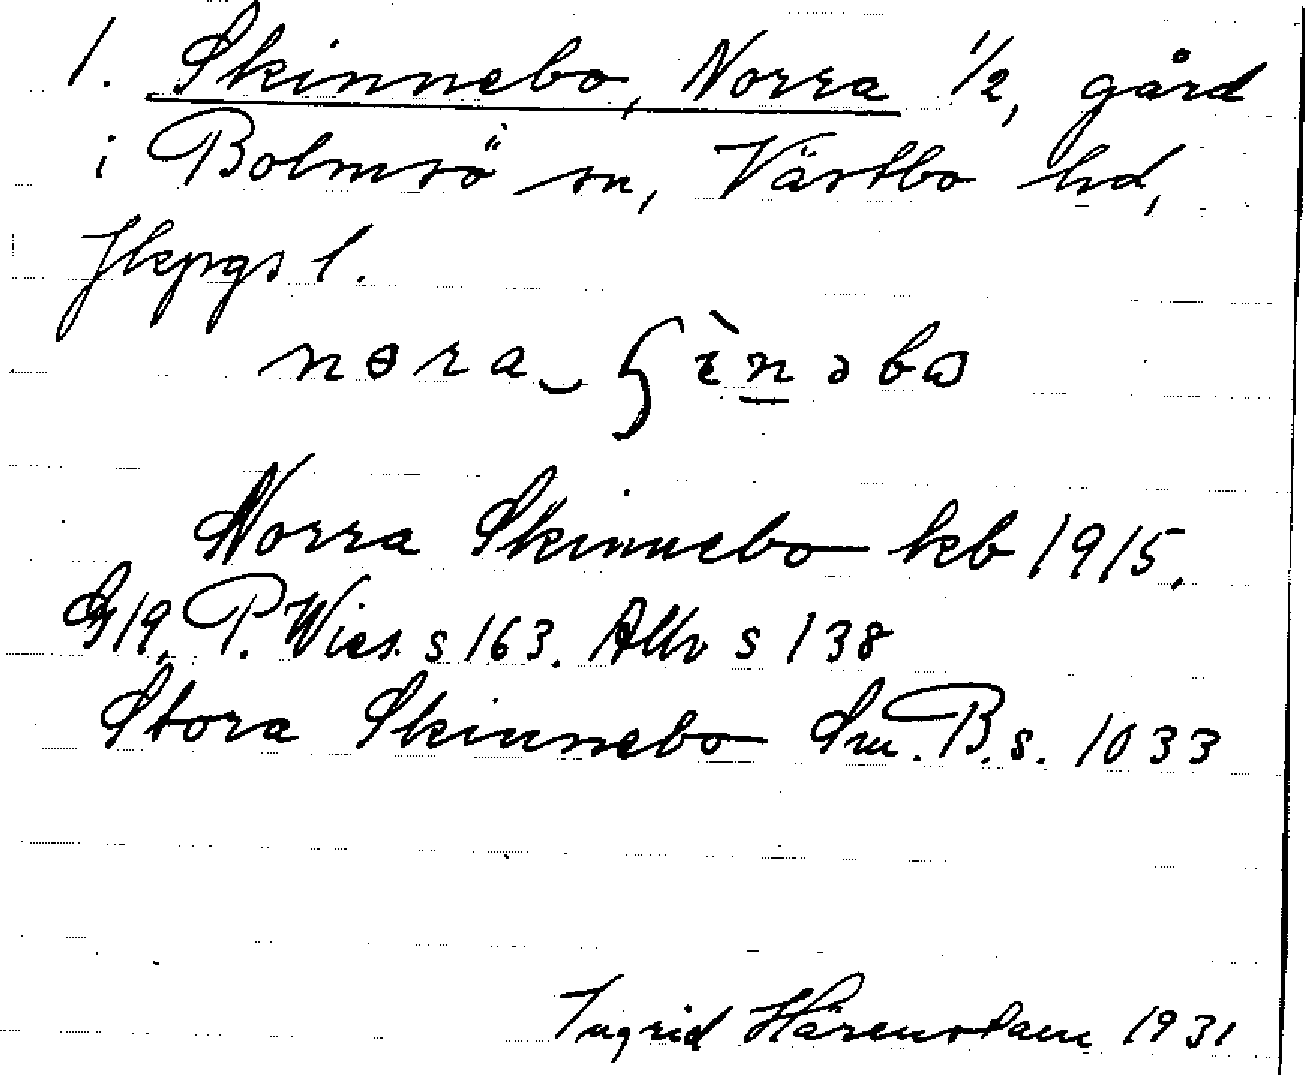 1. Skinnebo, Norra 1/2, gård
i Bolmsö sn, Västbo hd,
Jkpgs l.
Norra Skinnebo kb 1915.
G19. P. Wies. s 163. Allv s 138
Stora Skinnebo Sm. B. s. 1033
Ingrid Härenstam 1931